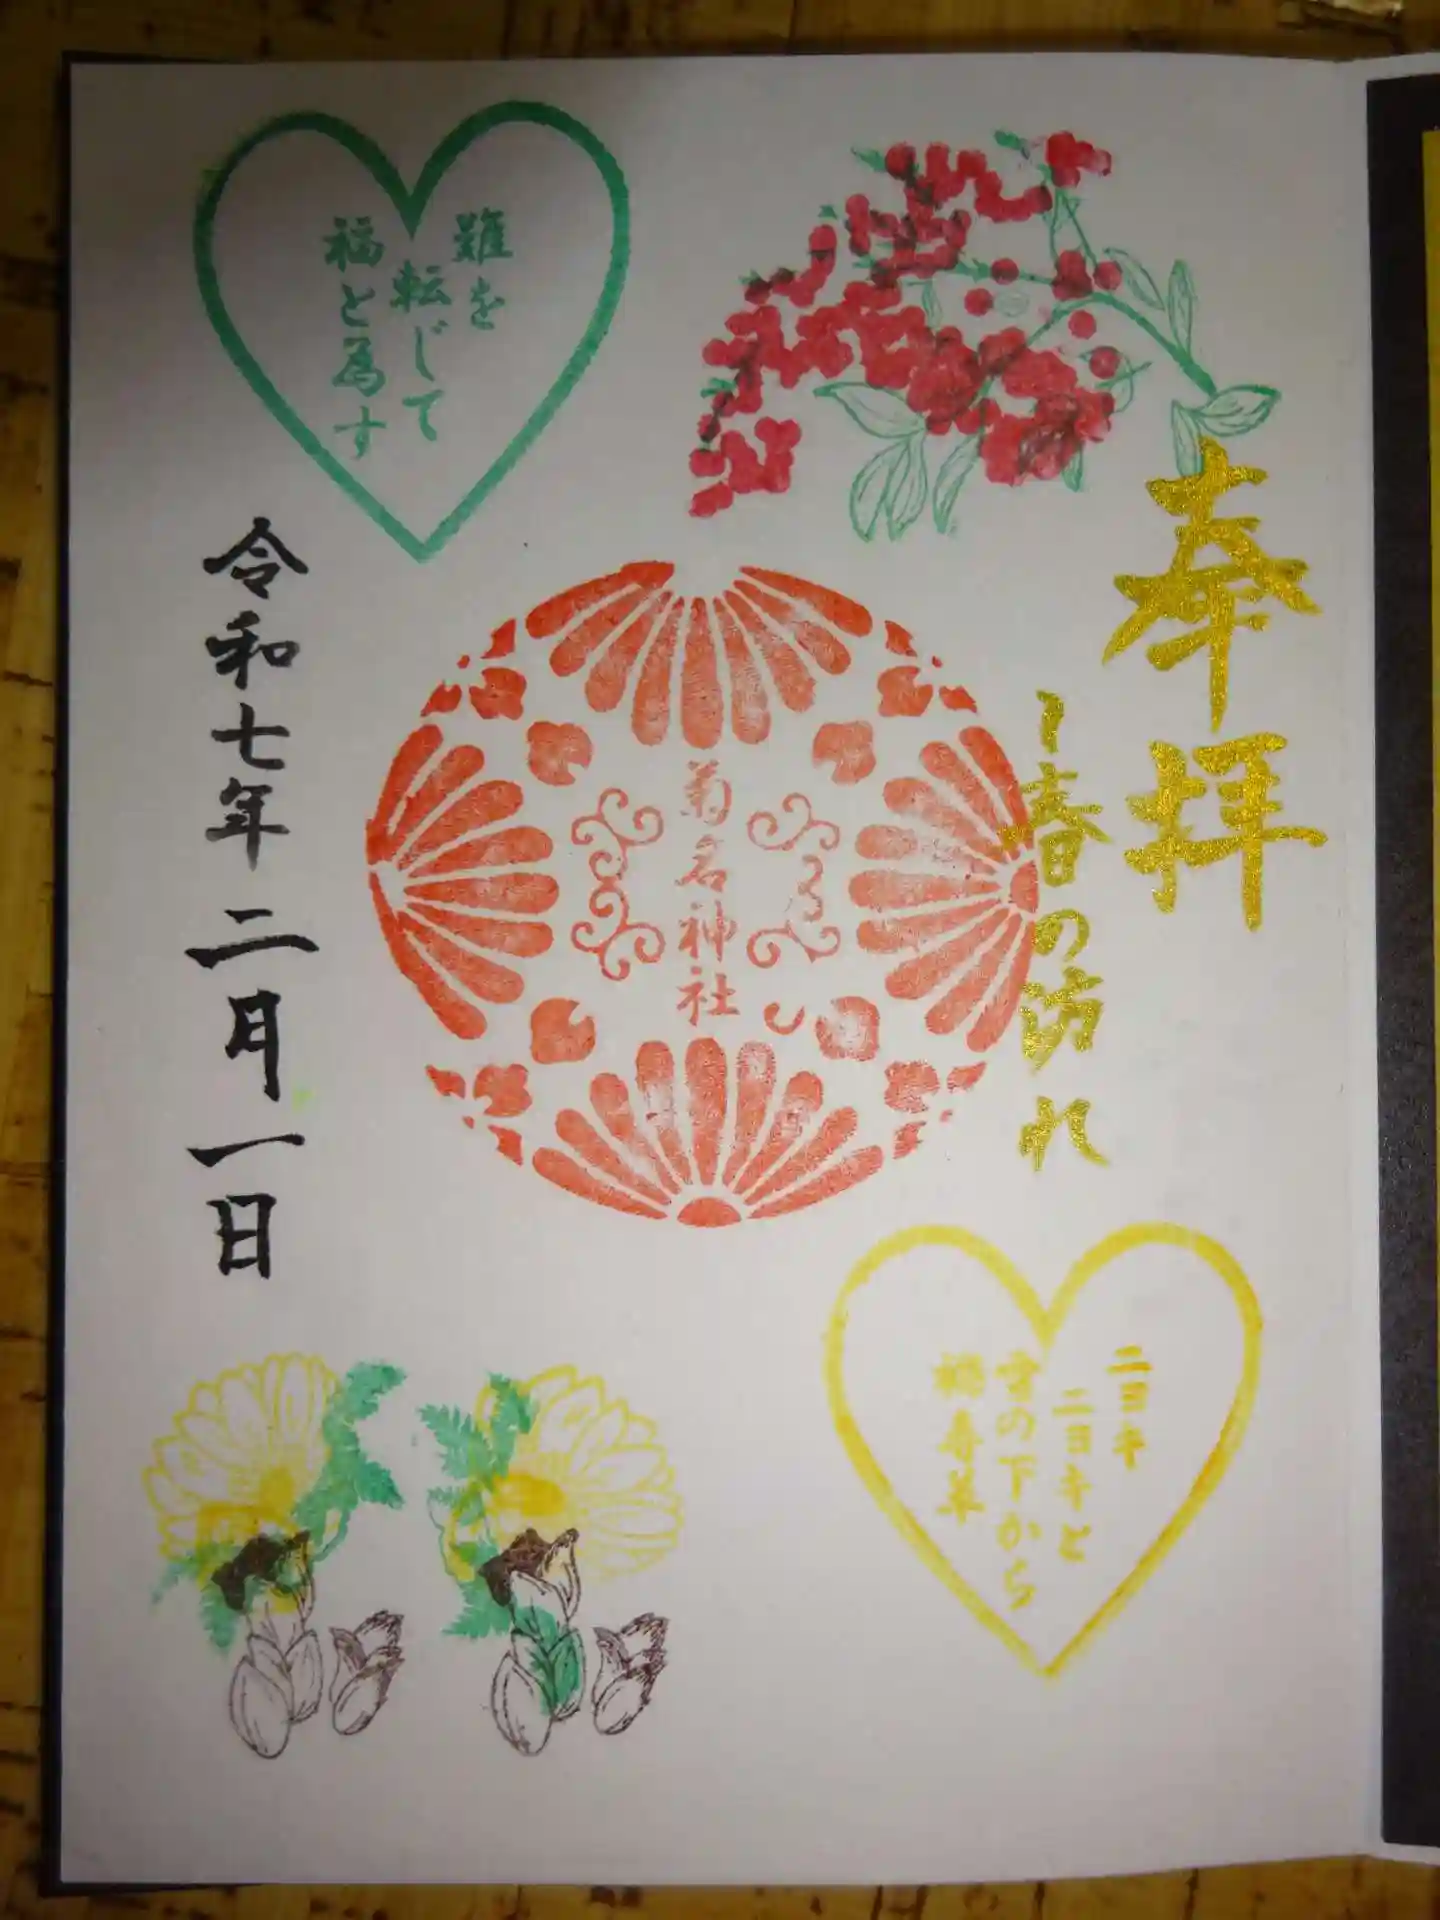 奉拝
～春の訪れ
難を
転じて
福と為す
菊名神社
令和七年二月一日
ニヨキ
ニヨキと
雪の下から
福寿草